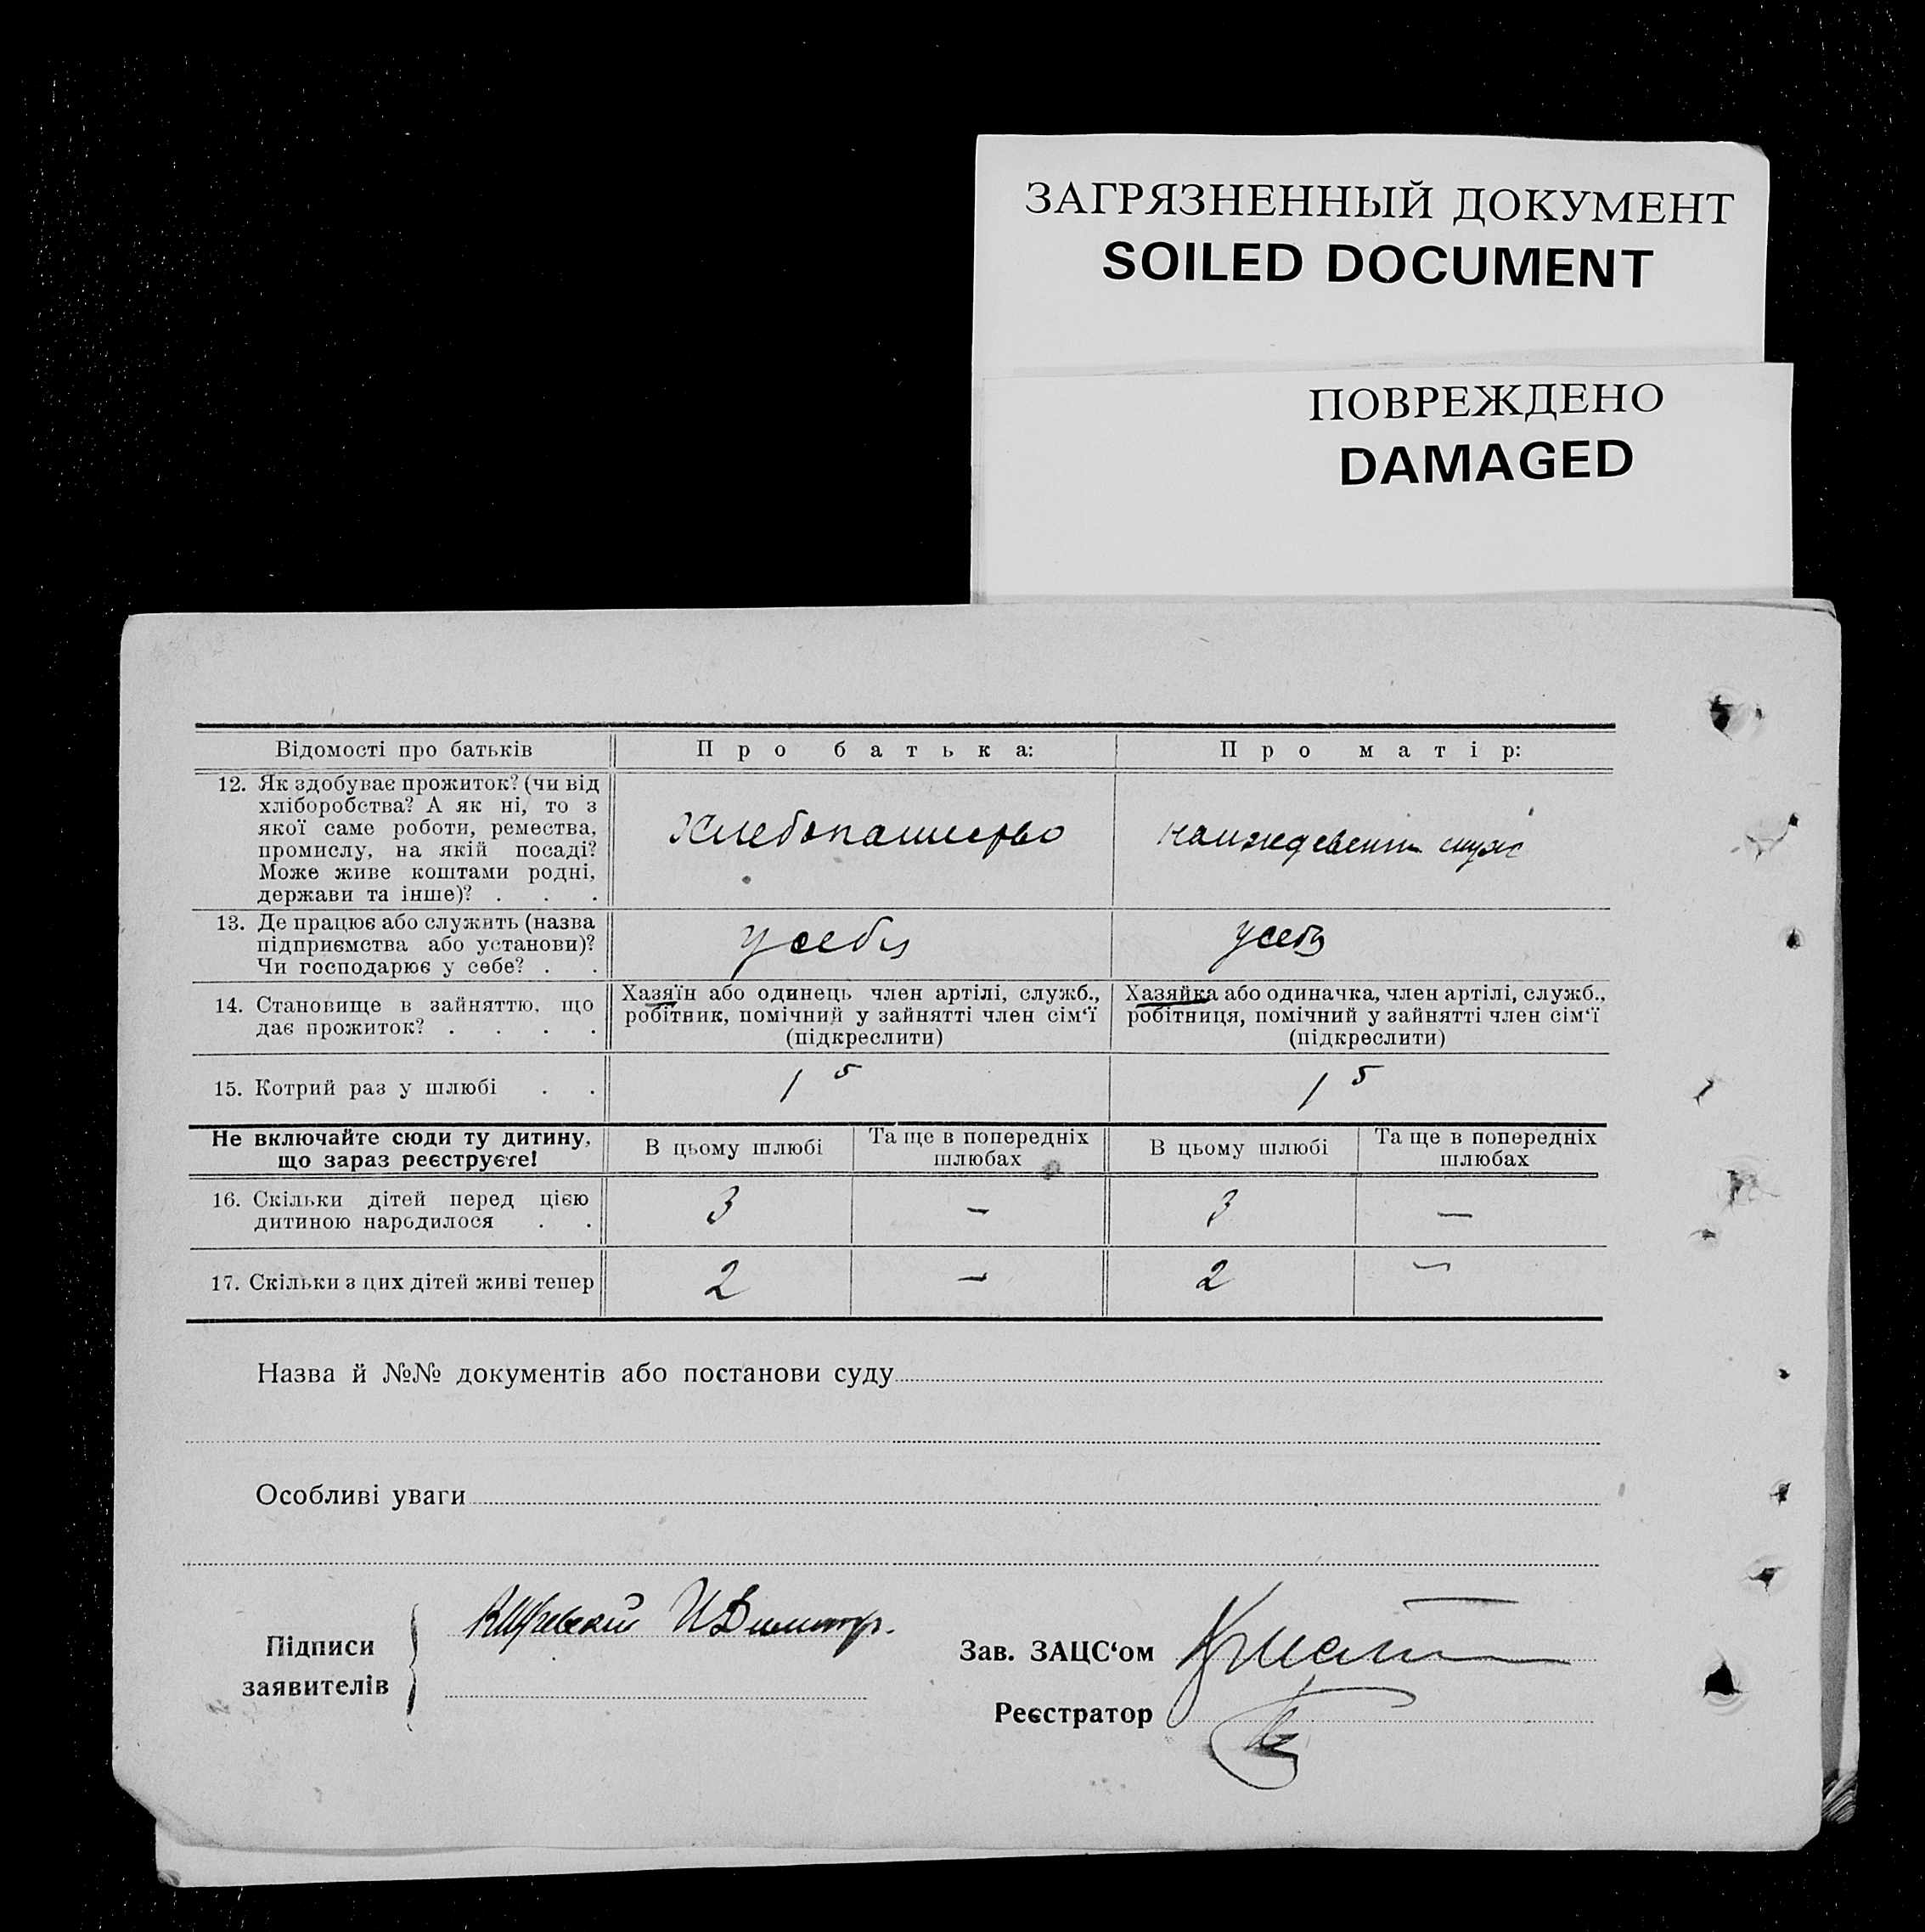 ЗАГРЯЗНЕННЫЙ ДОКУМЕНТ
SOILED DOCUMENT
ПОВРЕЖДЕНО
DAMAGED
Відомості про батьків
Про батька:
Про матір:
12. Як здобуває прожиток? (чи від
хліборобства? А як ні, то з
якої саме роботи, ремества,
промислу, на якій посаді?
Може живе коштами родні,
держави та інше)? . . .
Хлебопашество
13. Де працює або служить (назва
підприємства або установи)?
Чи господарює у себе? . .
у себя
у себя
14. Становище в зайняттю, що
дає прожиток? . . . .
Хазяїн або одинець член артілі, служб.,
робітник, помічний у зайнятті член сім‘ї
(підкреслити)
Хазяйка або одиначка, член артілі, служб.,
робітниця, помічний у зайнятті член сім‘ї
(підкреслити)
15. Котрий раз у шлюбі . .
1
1
Не включайте сюди ту дитину,
що зараз реєструєте!
В цьому шлюбі
Та ще в попередніх
шлюбах
В цьому шлюбі
Та ще в попередніх
шлюбах
16. Скільки дітей перед цією
дитиною народилося . .
3 — 3 —
17. Скільки з цих дітей живі тепер
2 — 2 —
Назва й №№ документів або постанови суду
Особливі уваги
Підписи
заявителів
Зав. ЗАЦС‘ом
Реєстратор